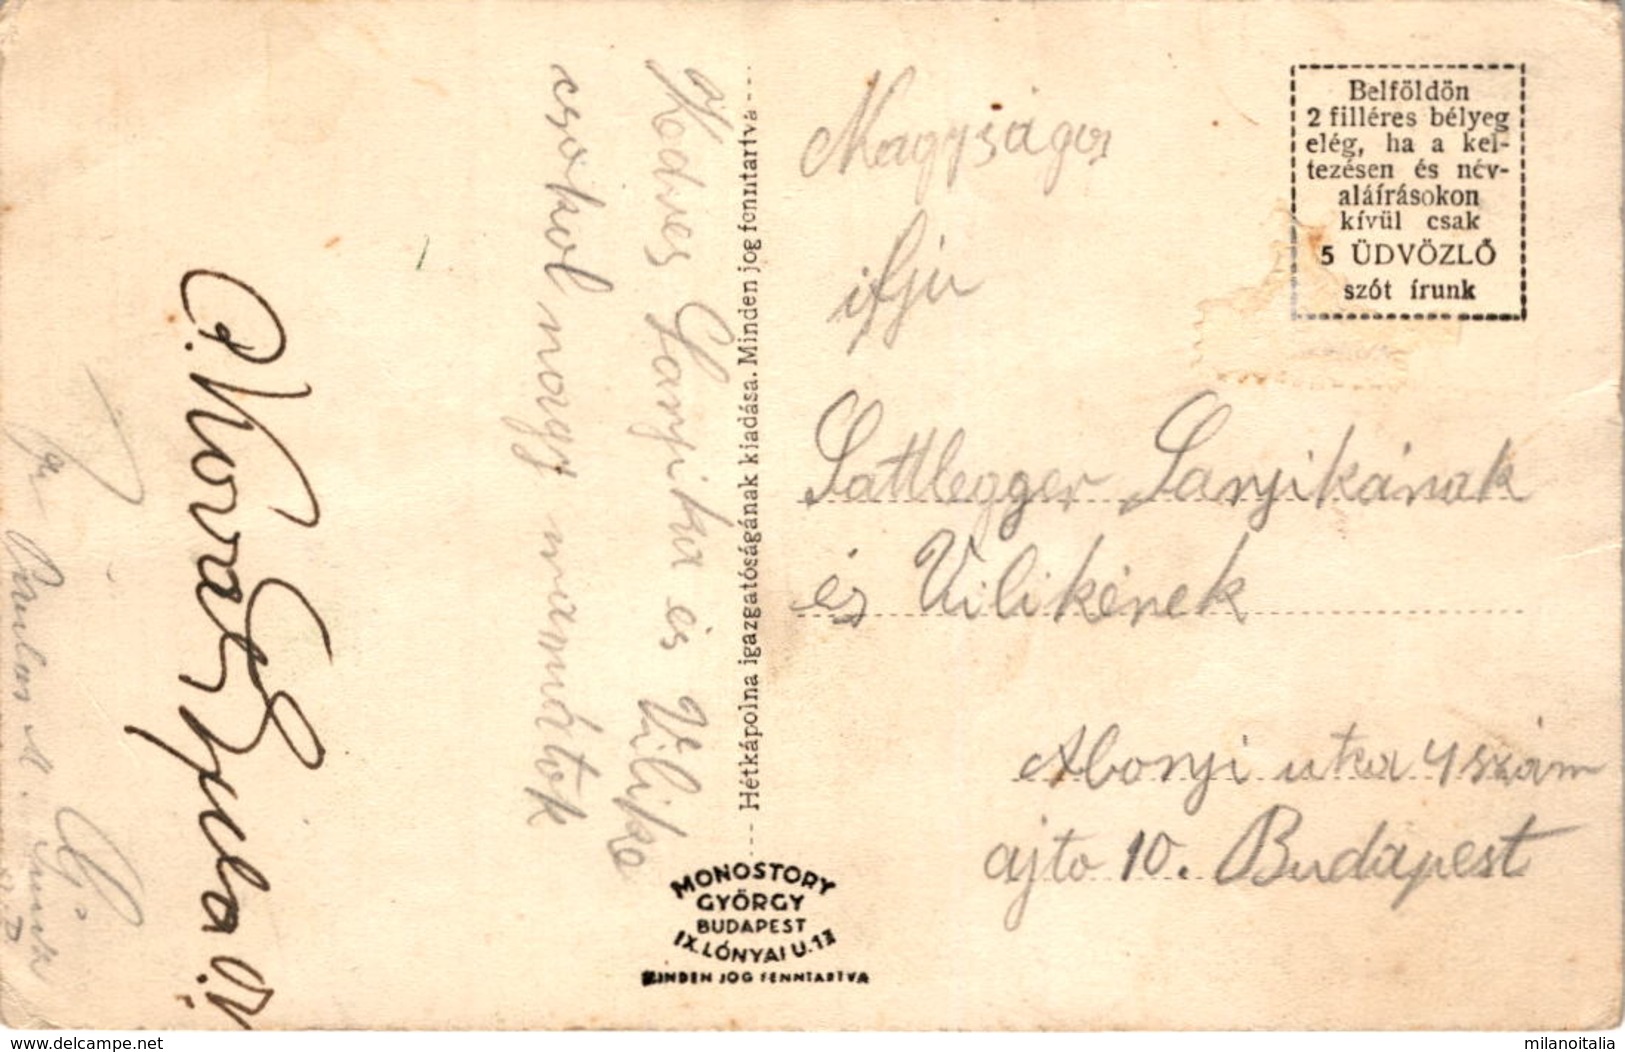 Belföldön
2 filléres bélyeg
elég, ha a kel-
tezésen és név-
aláírásokon
kívül csak
5 ÜDVÖZLŐ
szót írunk
Magyságos
ifjú
Sattlegger Sanyikának
és Vilikének
Abonyi utca 4 szám
ajto 10. Budapest
Hétkápolna igazgatóságának kiadása. Minden jog fenntartva
Kedves Sanyika és Vilike
csókol nagy mamátok
MONOSTORY
GYÖRGY
BUDAPEST
IX. LÓNYAI U. 13
MINDEN JOG FENNTARTVA
www.delcampe.net
milanoitalia